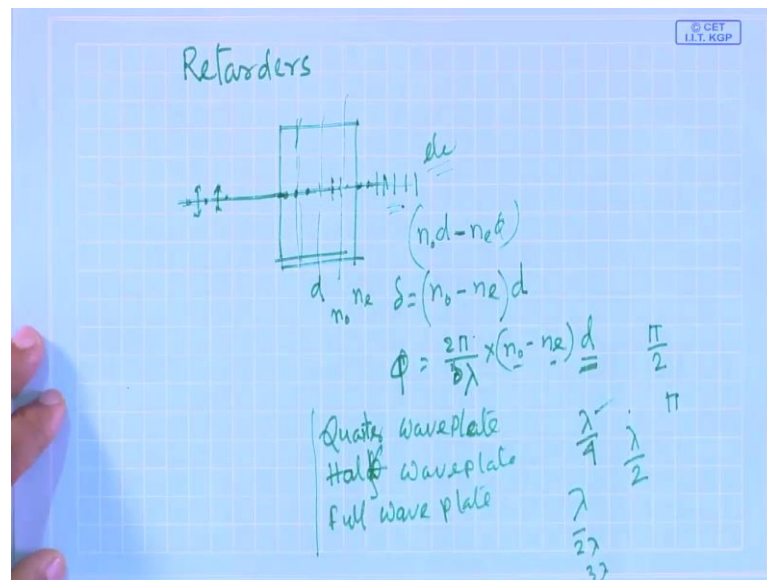 © CET
I.I.T. KGP
Retarders
(n₀d - nₑd)
d
n₀ nₑ δ = (n₀ - nₑ)d
φ = 2π/λ × (n₀ - nₑ) d π/2
π
Quarter waveplate λ/4 λ/2
Half waveplate
Full wave plate λ
2λ
3λ